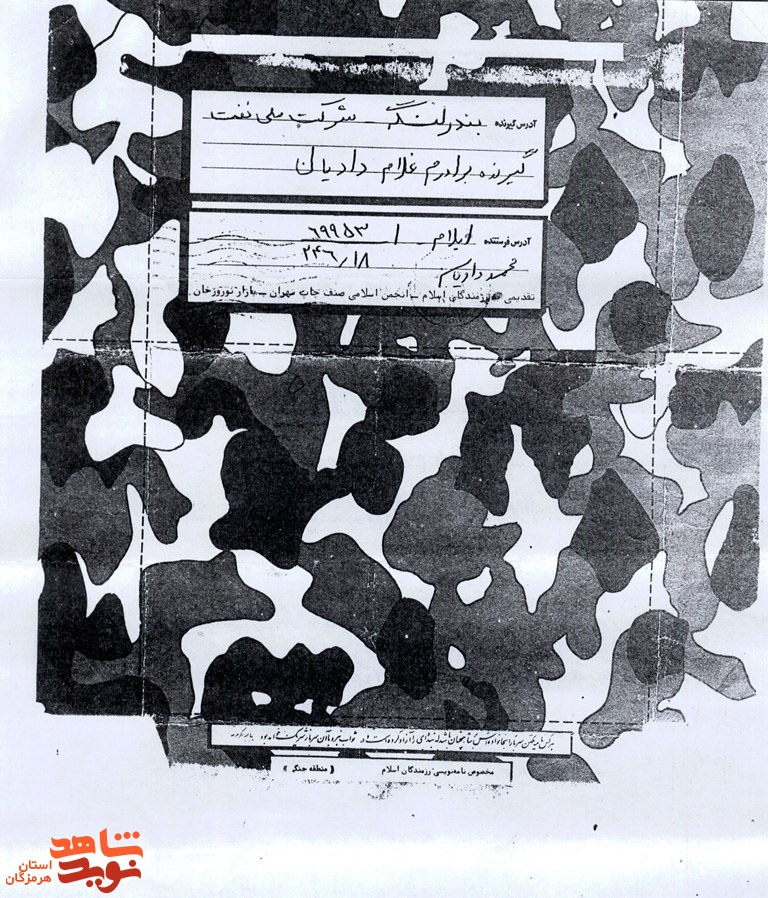 آدرس گیرنده بندرلنگه شرکت ملی نفت
گیرنده برادرم غلام دادیان
آدرس فرستنده ایلام ۶۹۹۵۳
۲۴۶/۱۸
محمد دادیان
تقدیمی به رزمندگان اسلام _ انجمن اسلامی صنف چاپ تهران _ بازار نوروزخان
مخصوص نامه‌نویسی رزمندگان اسلام (( منطقه جنگی ))
شاهد
نوید
استان
هرمزگان